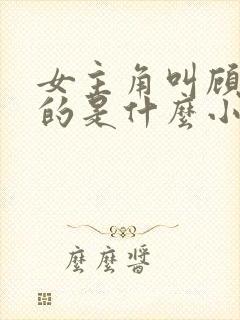 女主角叫顾
的是什麼小
麼麼醬